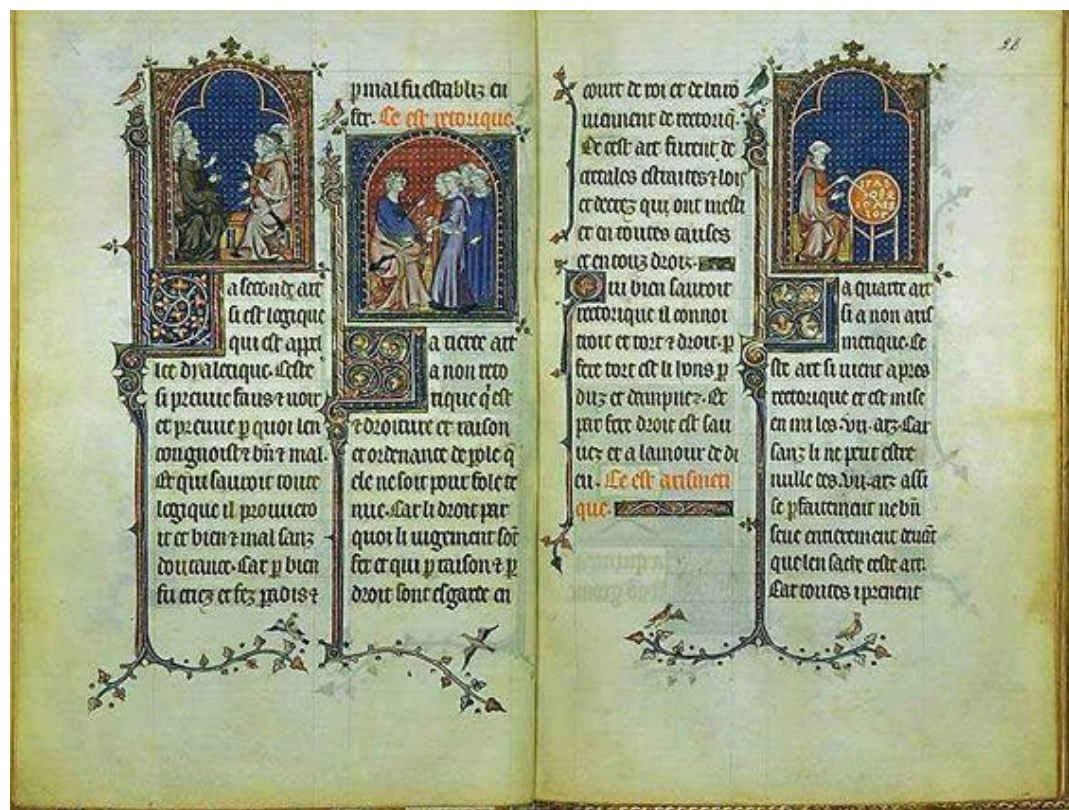 a seconde art
si est logique
qui est apel
lee dyaletique. Ceste
si preuue faus ⁊ uoir
et preuue p quoi len
congnoist ⁊ bñ ⁊ mal.
Et qui sauroit toute
logique il prouuero
it ce bien ⁊ mal sanz
doutance. Car p bien
fu ciex et fez padis ⁊
p mal fu establiz en
fer. Ce est retorique
a tierce art
a non reto
rique q̇ est
⁊ droiture et raison
et ordenance de pole q̇
ele ne soit pour fole te
nue. Car li droit par
quoi li iugement sõt
fet et qui p raison ⁊ p
droit sont esgarde en
court de roi et de baro
uiennent de rectoriq.
De cest art furent de
cretales estraites ⁊ lois
et decrez qui ont mesti
er en toutes causes
et en touz droiz.
Qui bien sauroit
rectorique il connoi
troit et tort ⁊ droit. p
fere tort est li hons p
duz et dampnez. Et
par fere droit est sau
uez et a lamour de di
eu. Ce est arismeti
que.
a quarte art
si a non aris
metique. Ce
ste art si uient apres
rectorique et est mise
en mi les .vii. arz. Car
sanz li ne peut estre
nulle des .vii. arz assi
se pfaitement ne bñ
seue entierement deuãt
que len sache ceste art.
Car toutes i prenent